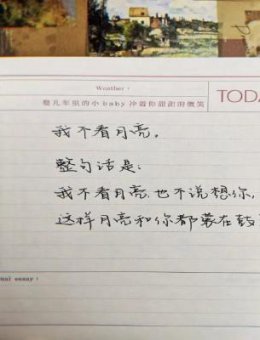 Weather:
婴儿车里的小baby冲着你甜甜的微笑
TODA
我不看月亮,
整句话是:
我不看月亮,也不说想你,
这样月亮和你都蒙在鼓